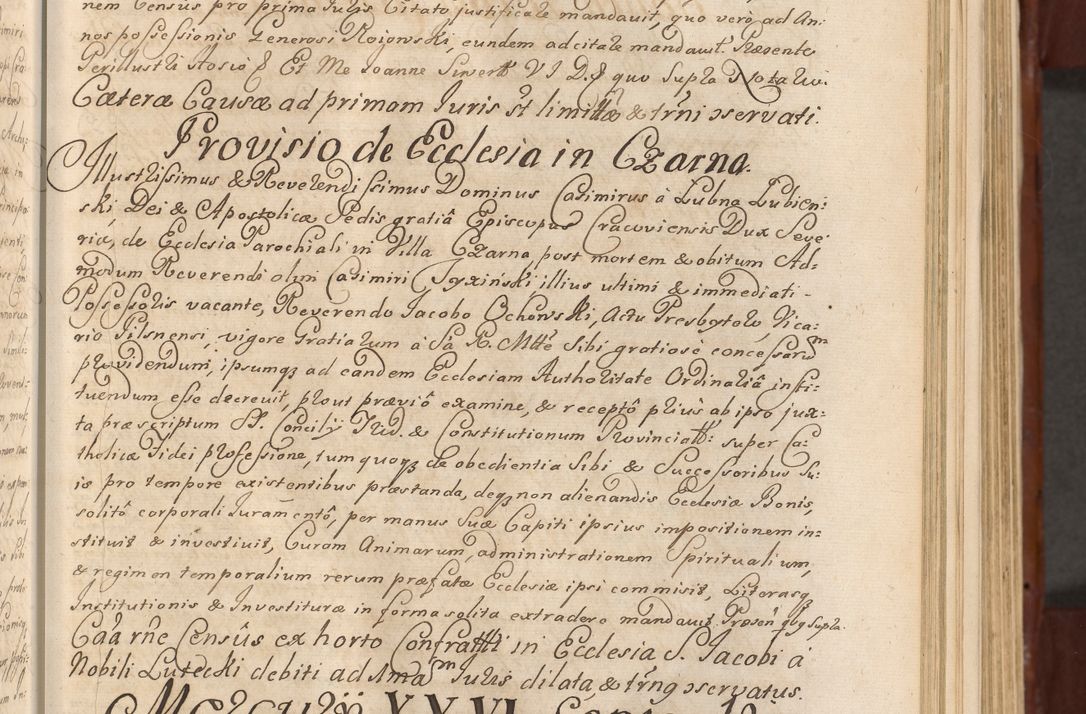 nem Census pro prima Iuris Citato justificale mandavit, quo verò ad An:
nos possessionis Generosi Roiowski, eundem ad citate mandavit. Præsente
Perillustri Hosio & Et Me Joanne Siwert V I D. & quo supra Notario.
Cæteræ Causæ ad primam Iuris st limittæ & trni ɔservati.
Provisio de Ecclesia in Czarna.
Illustrissimus & Reverendissimus Dominus Casimirus à Lubna Lubien:
ski, Dei & Apostolicæ Sedis gratiâ Episcopus Cracoviensis Dux Seve:
riæ, de Ecclesia Parochiali in Villa Czarna, post mortem & obitum Ad:
modum Reverendi olim Casimiri illius ultimi & immediati
Possessoris vacante, Reverendo Jacobo Ochowski, Actu Presbytero, Vica:
rio Pilsnensi, vigore Gratiarum à Sa R. Mtte Sibi gratiosè concessarum
providendum, ipsumq3 ad eandem Ecclesiam Authoritate Ordinariâ insti:
tuendum esse decrevit, prout præviô examine, & receptô priùs ab ipso jux:
ta præscriptum SS. Concilij Trid. & Constitutionum Provinciali: super Ca:
tholicæ Fidei professione, tum quoq3 de obedientia Sibi & Successoribus Su:
is pro tempore existentibus præstanda, deq3 non alienandis Ecclesiæ Bonis,
solitô corporali Iuramentô, per manus Suæ Capiti ipsius impositionem in:
stituit & investivit, Curam Animarum, administrationem Spiritualium,
& regimen temporalium rerum præfatæ Ecclesiæ ipsi commisit, Literasq3
Institutionis & Investituræ in forma solita extradere mandavit. Præsen qbg supra.
Caa rne Censûs ex horto Confratti in Ecclesia S. Jacobi à
Nobili Lutecki debiti ad Imam Iuris dilata, & trng ɔservatus.
Mercurij XXVI